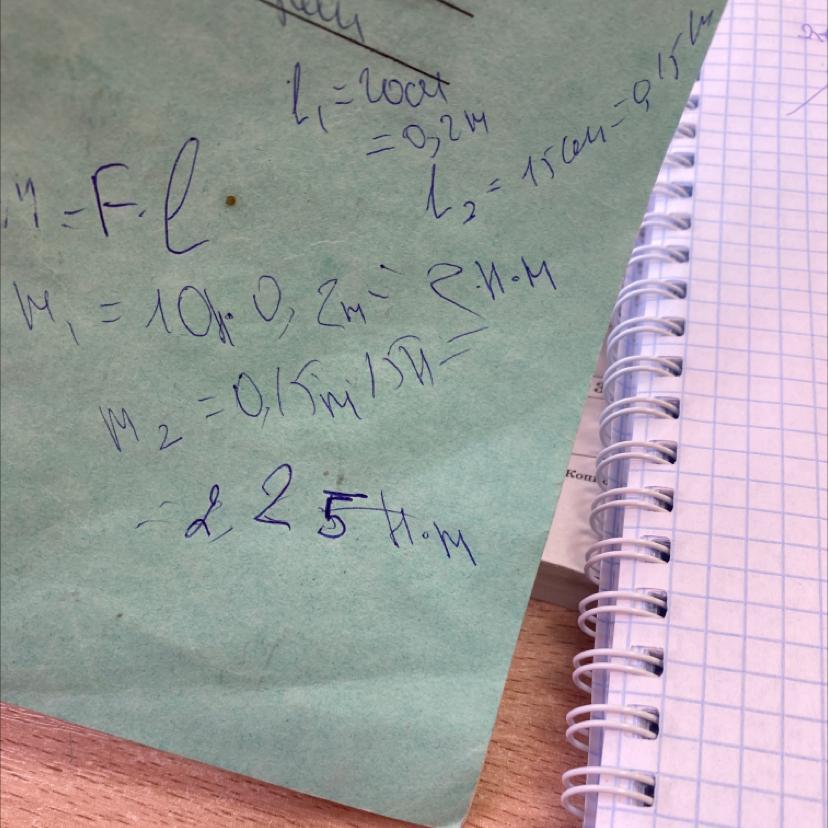 l₁ = 20см
= 0,2м
l₂ = 15см = 0,15м
М = F · l
М₁ = 10Н · 0,2м = 2 Н·м
М₂ = 0,15м 15Н =
= 2,25 Н·м